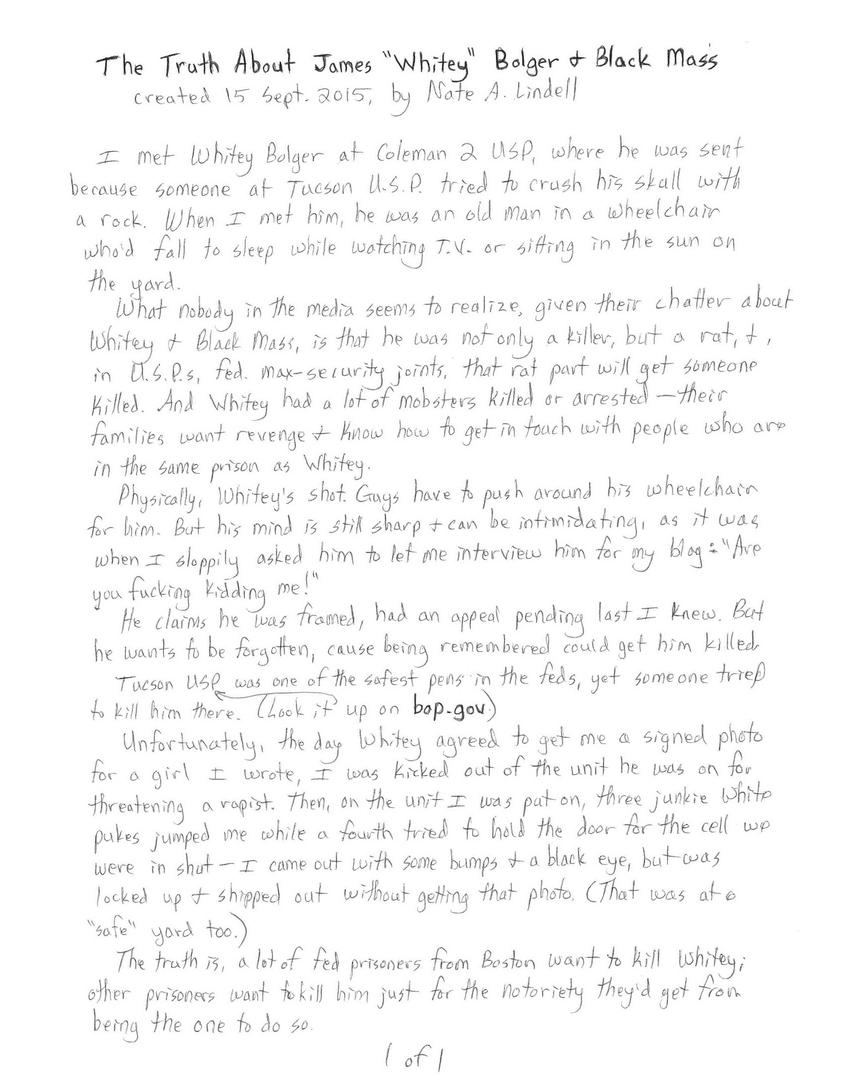 The Truth About James "Whitey" Bolger + Black Mass
created 15 Sept. 2015, by Nate A. Lindell
I met Whitey Bolger at Coleman 2 USP, where he was sent
because someone at Tucson U.S.P. tried to crush his skull with
a rock. When I met him, he was an old man in a wheelchair
who'd fall to sleep while watching T.V. or sitting in the sun on
the yard.
What nobody in the media seems to realize, given their chatter about
Whitey + Black Mass, is that he was not only a killer, but a rat, +,
in U.S.P.s, fed. max-security joints, that rat part will get someone
killed. And Whitey had a lot of mobsters killed or arrested—their
families want revenge + know how to get in touch with people who are
in the same prison as Whitey.
Physically, Whitey's shot. Guys have to push around his wheelchair
for him. But his mind is still sharp + can be intimidating, as it was
when I sloppily asked him to let me interview him for my blog: "Are
you fucking kidding me!"
He claims he was framed, had an appeal pending last I knew. But
he wants to be forgotten, cause being remembered could get him killed.
Tucson USP was one of the safest pens in the feds, yet someone tried
to kill him there. (Look it up on bop.gov.)
Unfortunately, the day Whitey agreed to get me a signed photo
for a girl I wrote, I was kicked out of the unit he was on for
threatening a rapist. Then, on the unit I was put on, three junkie white
pukes jumped me while a fourth tried to hold the door for the cell we
were in shut—I came out with some bumps + a black eye, but was
locked up + shipped out without getting that photo. (That was at a
"safe" yard too.)
The truth is, a lot of fed prisoners from Boston want to kill Whitey;
other prisoners want to kill him just for the notoriety they'd get from
being the one to do so.
1 of 1